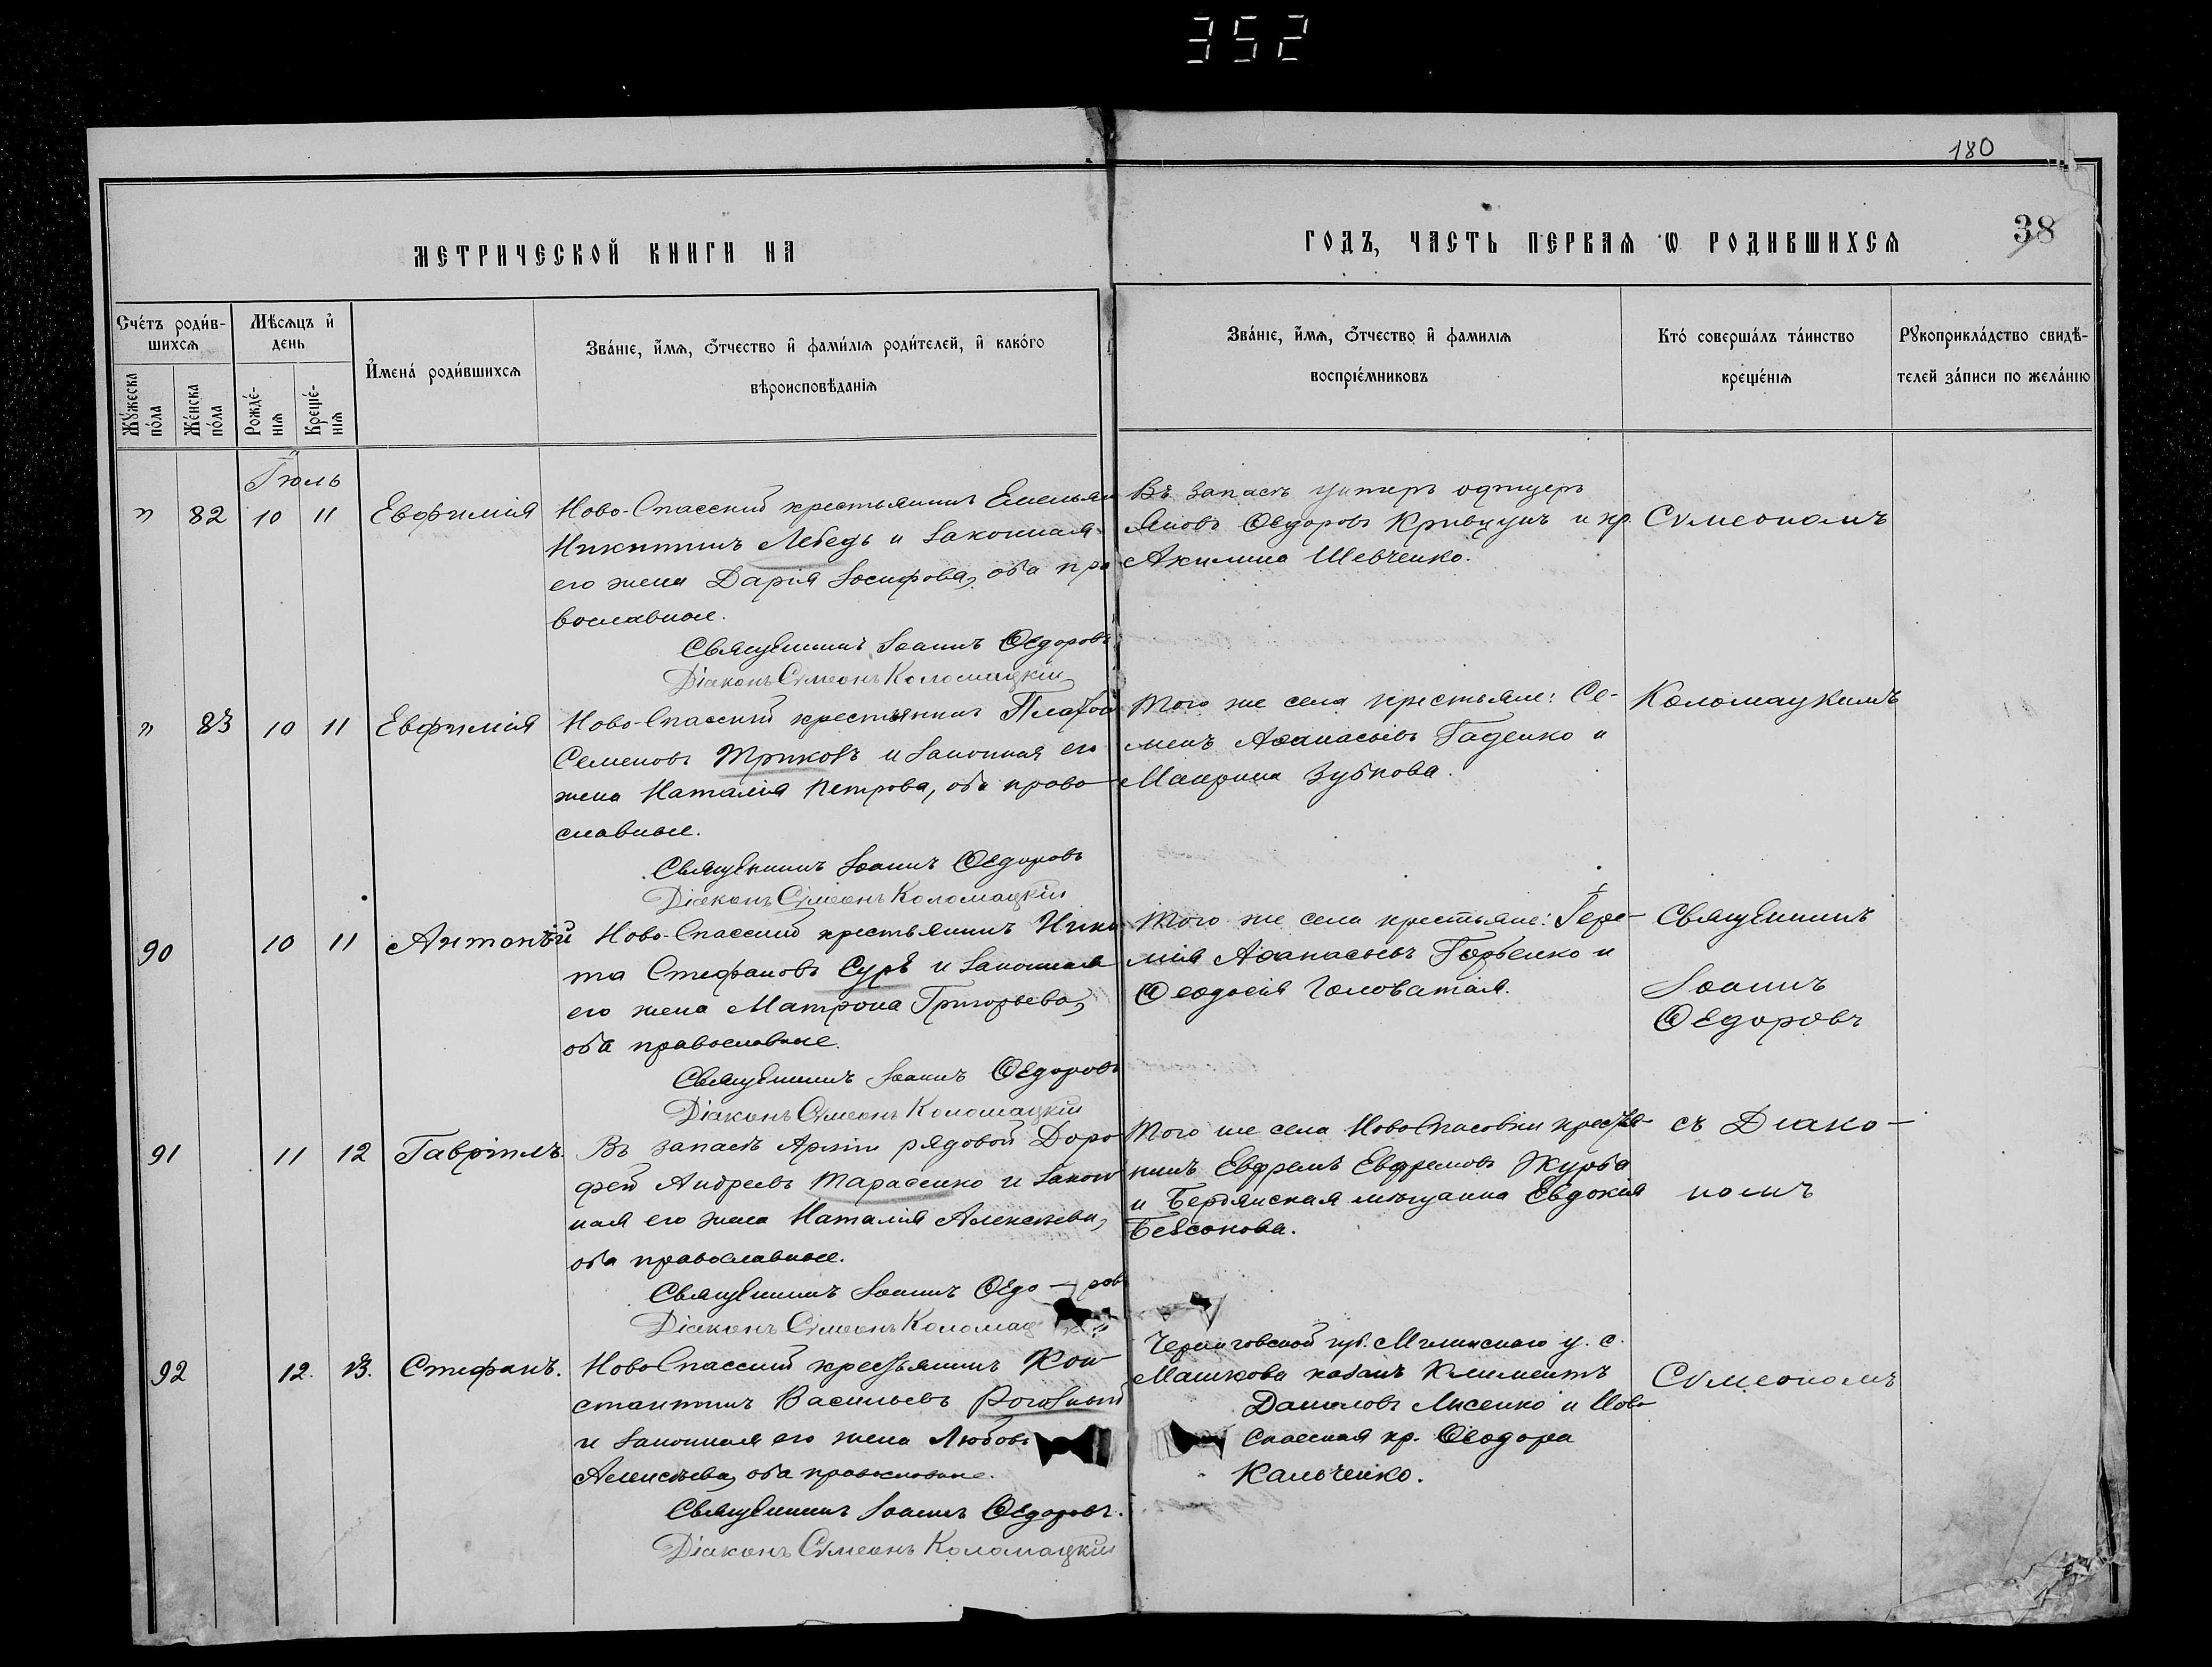 352
180
МЕТРИЧЕСКОЙ КНИГИ НА
ГОДЪ, ЧАСТЬ ПЕРВАѦ Ѡ РОДИВШИХСѦ
38
Счéтъ роди́в-
шихсѧ
Мѣсѧцъ и҆
день
Мꙋ́жеска
по́ла
Же́нска
по́ла
Рожде́-
нїѧ
Креще́-
нїѧ
И҆мена́ роди́вшихсѧ
Зва́нїе, и҆́мѧ, ѻ҆́тчество и҆ фами́лїѧ роди́телей, и҆ како́го
вѣроисповѣ́данїѧ
Зва́нїе, и҆́мѧ, ѻ҆́тчество и҆ фамилїѧ
воспрїе́мниковъ
Кто́ соверша́лъ та́инство
креще́нїѧ
Рꙋкоприкла́дство свидѣ́-
телей за́писи по жела́нїю
Іюль
" 82 10 11 Евфимія
Ново-Спасскій крестьянинъ Емельян
Никитинъ Лебедь и законная
его жена Дарія Іосифова, оба пра
вославные.
Священникъ Іоаннъ Ѳедоровъ
Діаконъ Сѵмеонъ Коломацкій
Въ запасѣ унтеръ офицеръ
Яковъ Ѳедоровъ Кривцунъ и кр.
Акилина Шевченко.
Сѵмеономъ
" 83 10 11 Евфимія
Ново-Спасскій крестьянинъ Платон
Семеновъ Триковъ и законная его
жена Наталія Петрова, оба право
славные.
Священникъ Іоаннъ Ѳедоровъ
Діаконъ Сѵмеонъ Коломацкій
Того же села крестьяне: Се-
менъ Аѳанасьевъ Гаденко и
Маврина Зубкова.
Коломацкимъ
90 10 11 Антоній
Ново-Спасскій крестьянинъ Ники
та Стефановъ Суръ и законная
его жена Матрона Григорьева,
оба православные.
Священникъ Іоаннъ Ѳедоровъ
Діаконъ Сѵмеонъ Коломацкій
Того же села крестьяне: Іере-
мія Аѳанасьевъ Горбенко и
Ѳеодосія Головатая.
Священникъ
Іоаннъ
Ѳедоровъ
91 11 12 Гавріилъ.
Въ запасѣ Арміи рядовой Доро
фей Андреевъ Тарасенко и закон
ная его жена Наталія Алексѣева,
оба православные.
Священникъ Іоаннъ Ѳедо — ровъ
Діаконъ Сѵмеонъ Коломац
Того же села НовоСпасовки кресть-
нинъ Евфремъ Евфремовъ Журба
и Бердянская мѣщанка Евдокія
Безсонова.
съ Діако-
номъ
92 12. 13. Стефанъ.
НовоСпасскій крестьянинъ Кон
стантинъ Васильевъ Рогозный
и законная его жена Любовь
Алексѣева, оба православные.
Священникъ Іоаннъ Ѳедоровъ.
Діаконъ Сѵмеонъ Коломацкій
Черниговской губ. Мглинскаго у. с.
Машкова казакъ Климентъ
Даниловъ Лисенко и Ново
Спасская кр. Ѳеодора
Кальченко.
Сѵмеономъ